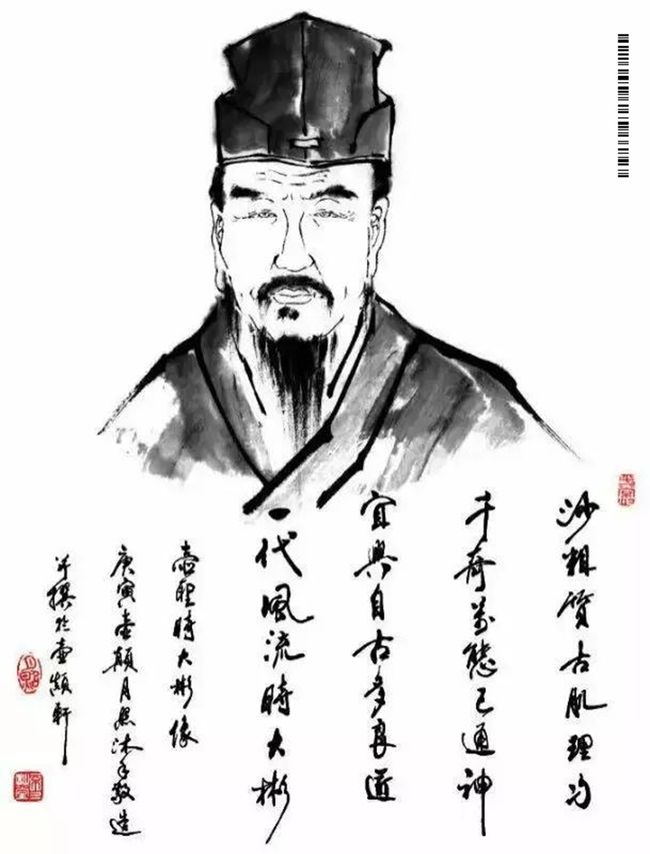 沙粗質古肌理勻
千奇萬態已通神
宜興自古多良匠
一代風流時大彬
壺聖時大彬像
庚寅壺顛月照沐手敬造
并撰於壺顛軒